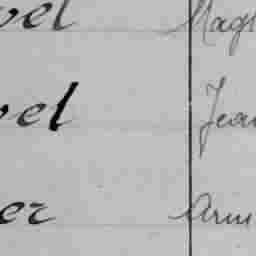 vel Magd
vel Jean
er Arm